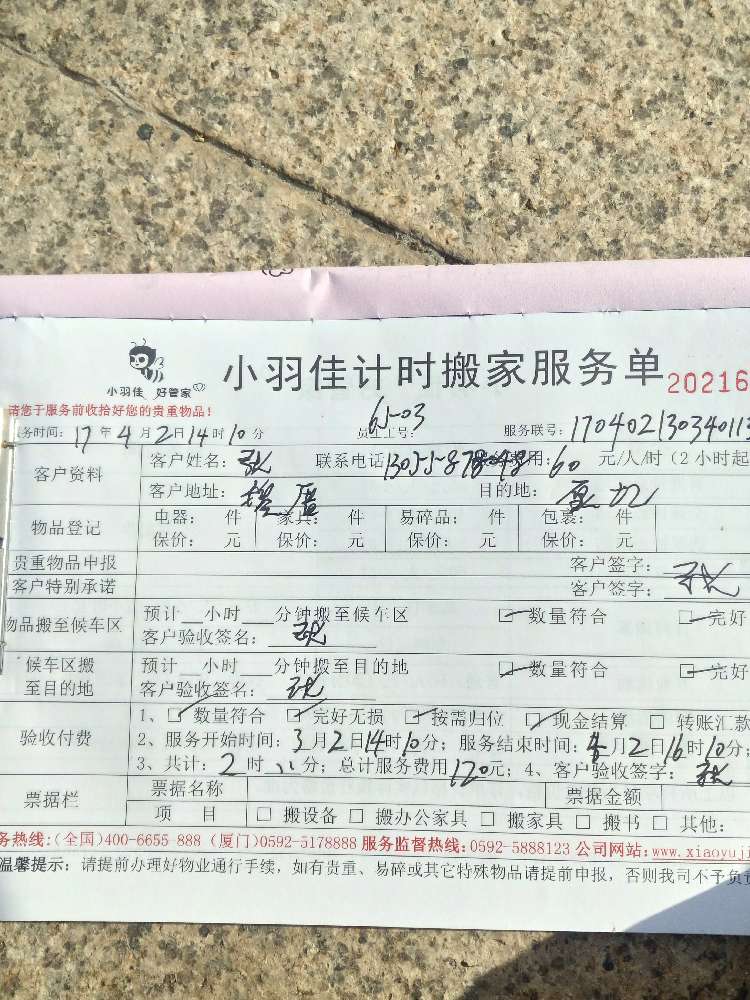 小羽佳 好管家
小羽佳计时搬家服务单 20216
请您于服务前收拾好您的贵重物品!
务时间: 17年4月2日14时10分 员工工号: 65-03 服务联号: 170402130340113
客户资料 客户姓名: 张 联系电话 费用: 60 元/人/时 (2小时起
客户地址: 目的地:
物品登记 电器: 件 家具: 件 易碎品: 件 包裹: 件
保价: 元 保价: 元 保价: 元 保价: 元
贵重物品申报 客户签字: 张
客户特别承诺 客户签字: 张
物品搬至候车区 预计__小时___分钟搬至候车区 数量符合 完好
客户验收签名: 张
候车区搬至目的地 预计__小时___分钟搬至目的地 数量符合 完好
客户验收签名: 张
验收付费 1、数量符合 完好无损 按需归位 现金结算 转账汇款
2、服务开始时间: 3月2日14时10分; 服务结束时间: 月2日16时10分;
3、共计: 2时 分; 总计服务费用120元; 4、客户验收签字: 张
票据栏 票据名称 票据金额
项 目 搬设备 搬办公家具 搬家具 搬书 其他:
务热线:(全国)400-6655 888 (厦门)0592-5178888 服务监督热线:0592-5888123 公司网站:www.xiaoyuji
温馨提示: 请提前办理好物业通行手续, 如有贵重、易碎或其它特殊物品请提前申报, 否则我司不予负责